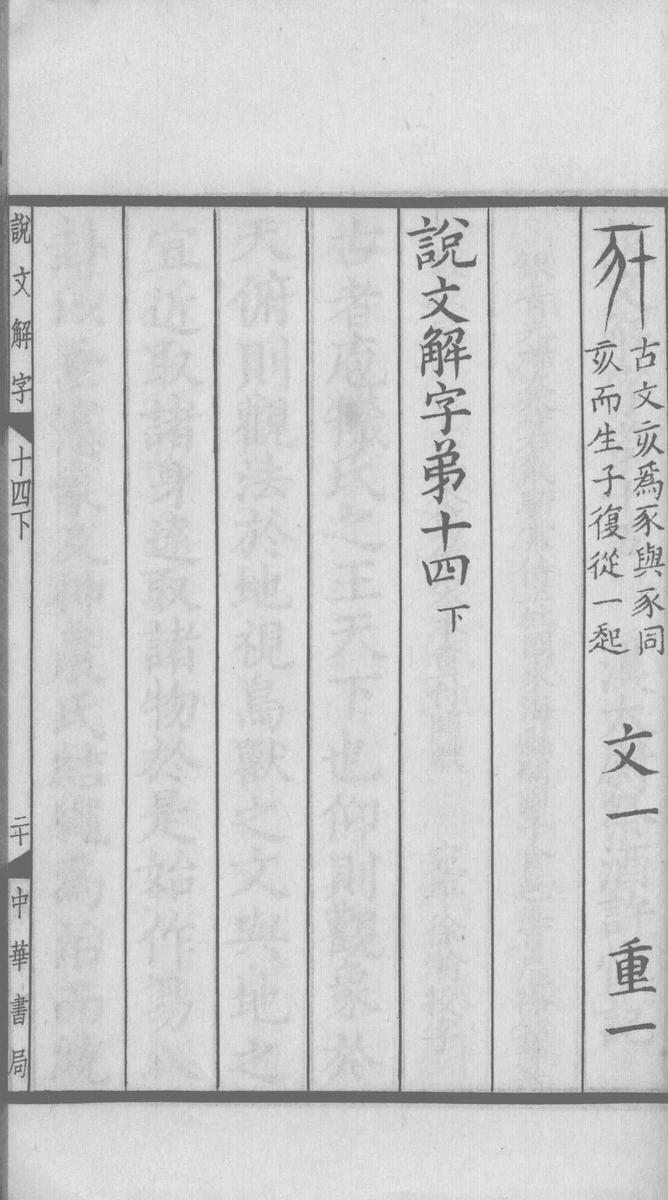 古文亥爲豕與豕同
亥而生子復從一起
文一 重一
說文解字弟十四下
說文解字 十四下 二十 中華書局